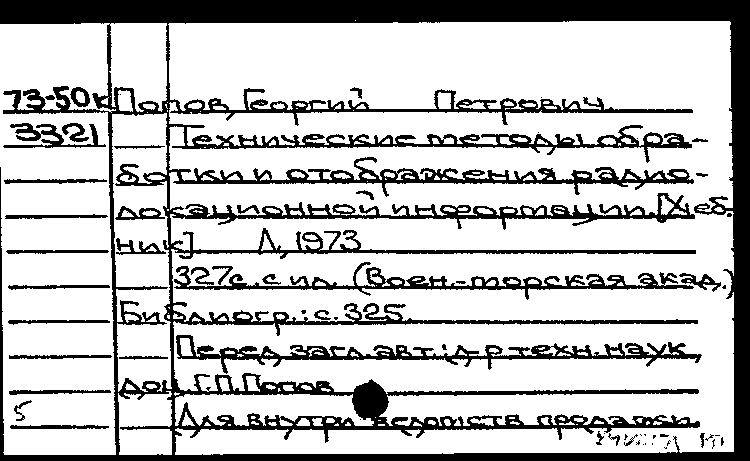 73-50к Попов, Георгий Петрович.
3321 Технические методы обра-
ботки и отображения радио-
локационной информации. [Учеб-
ник]. Л., 1973
327с. с ил. (Воен.-морская акад.)
Библиогр.: с. 325.
Перед загл. авт.: д-р техн. наук,
доц. Г.П. Попов
5 Для внутри ведомств продажи.